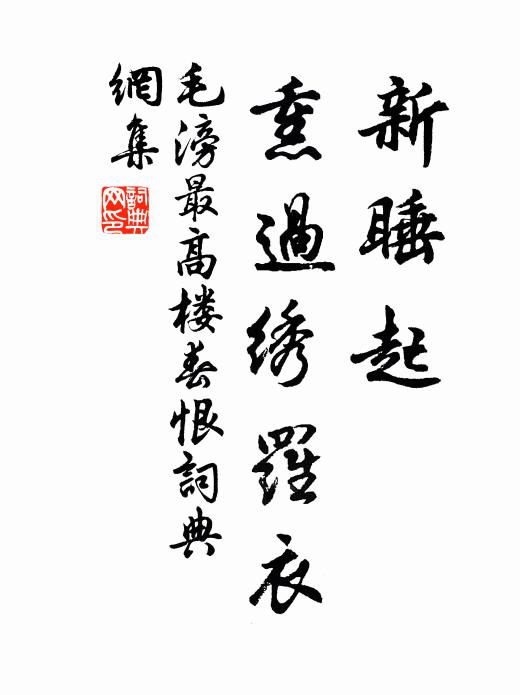 新睡起
熏過绣羅衣
毛滂最高楼春恨詞典
網集
詞典
网印